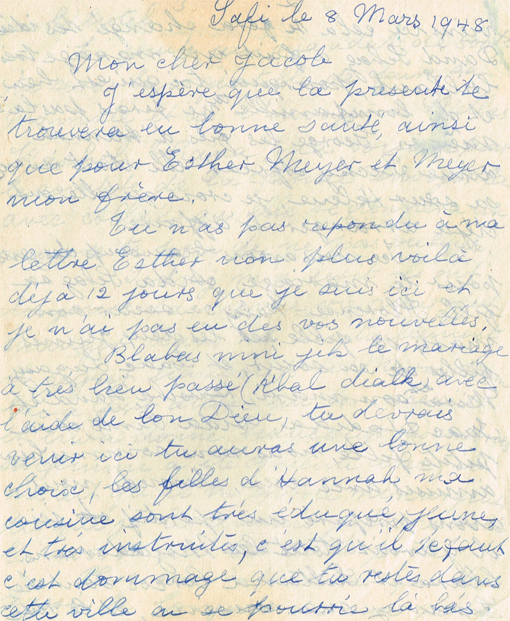 Safi le 8 Mars 1948
Mon cher Jacob
J'espère que la presente te
trouvera en bonne santé, ainsi
que pour Esther Meyer et Meyer
mon frère.
Tu n'as pas repondu à ma
lettre Esther non plus voilà
déjà 12 jours que je suis ici et
je n'ai pas eu des vos nouvelles.
Blabas mni jik le mariage
a très bien passé (k'bal dialk) avec
l'aide de bon Dieu, tu devrais
venir ici tu auras une bonne
choix, les filles d'Hannah ma
cousine sont très éduqué, jeunes
et très instruites, c'est qu'il te faut
c'est dommage que tu restes dans
cette ville ou se pourrie là bas.